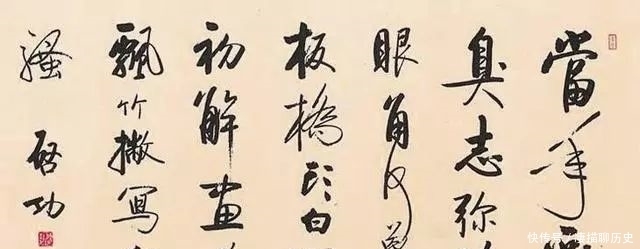 當年
臭志弥
眼角何
板橋头白
初解畫
飄竹撇寫
騷 啓功
快传号
聊历史